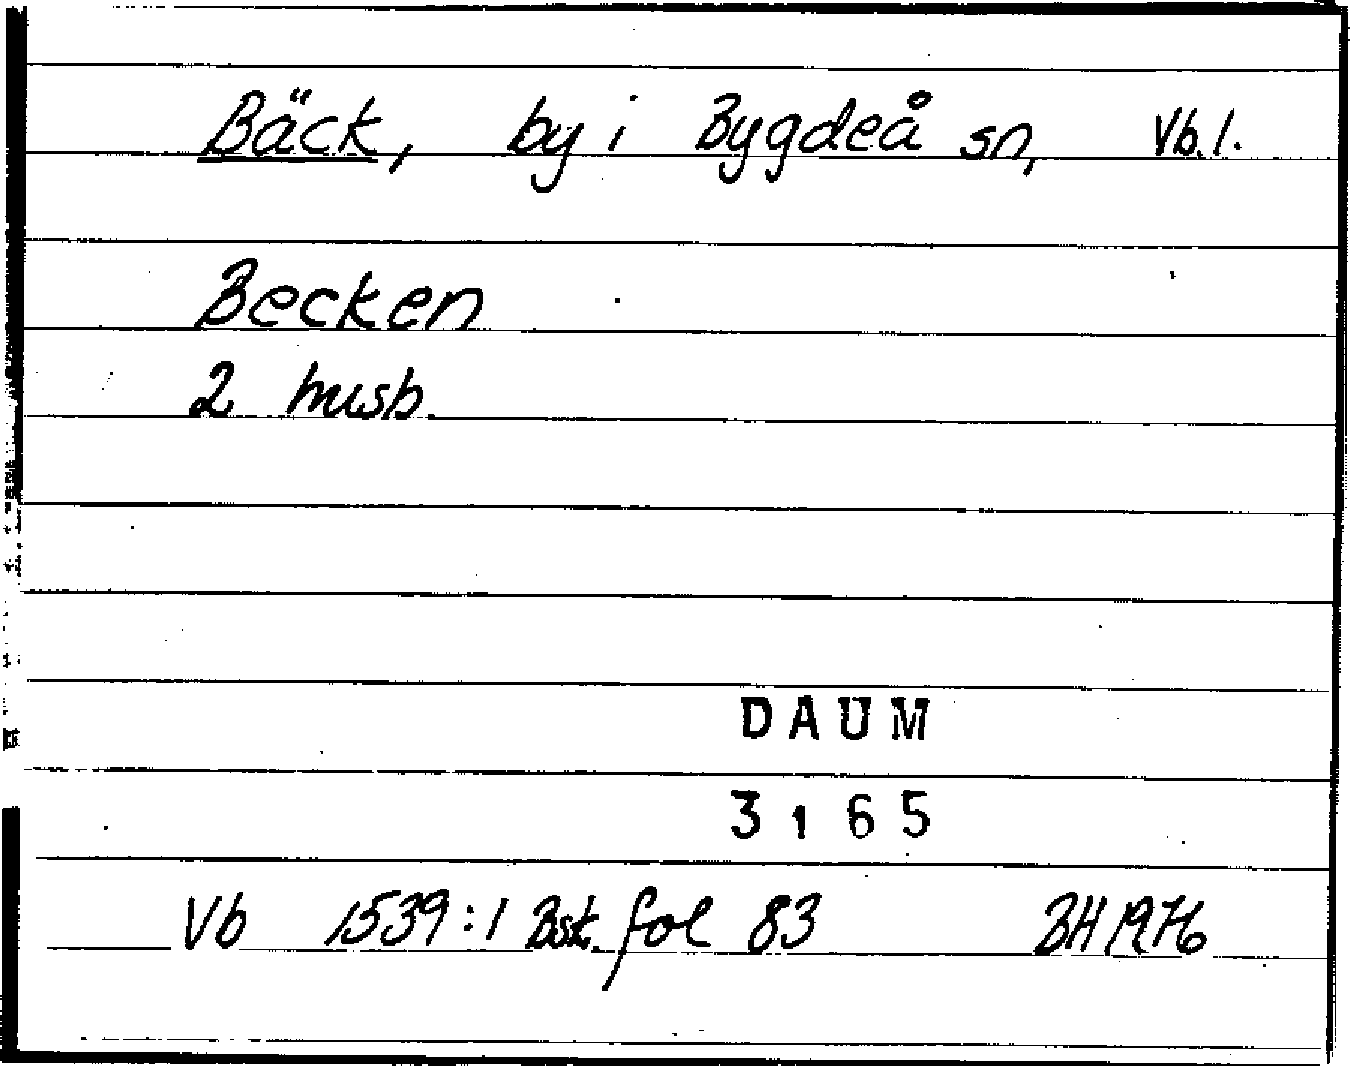 Bäck, by i Bygdeå sn, Vb.l.
Becken
2 husb.
DAUM
3165
Vb 1539:1 Bsk. fol 83 BH 1976